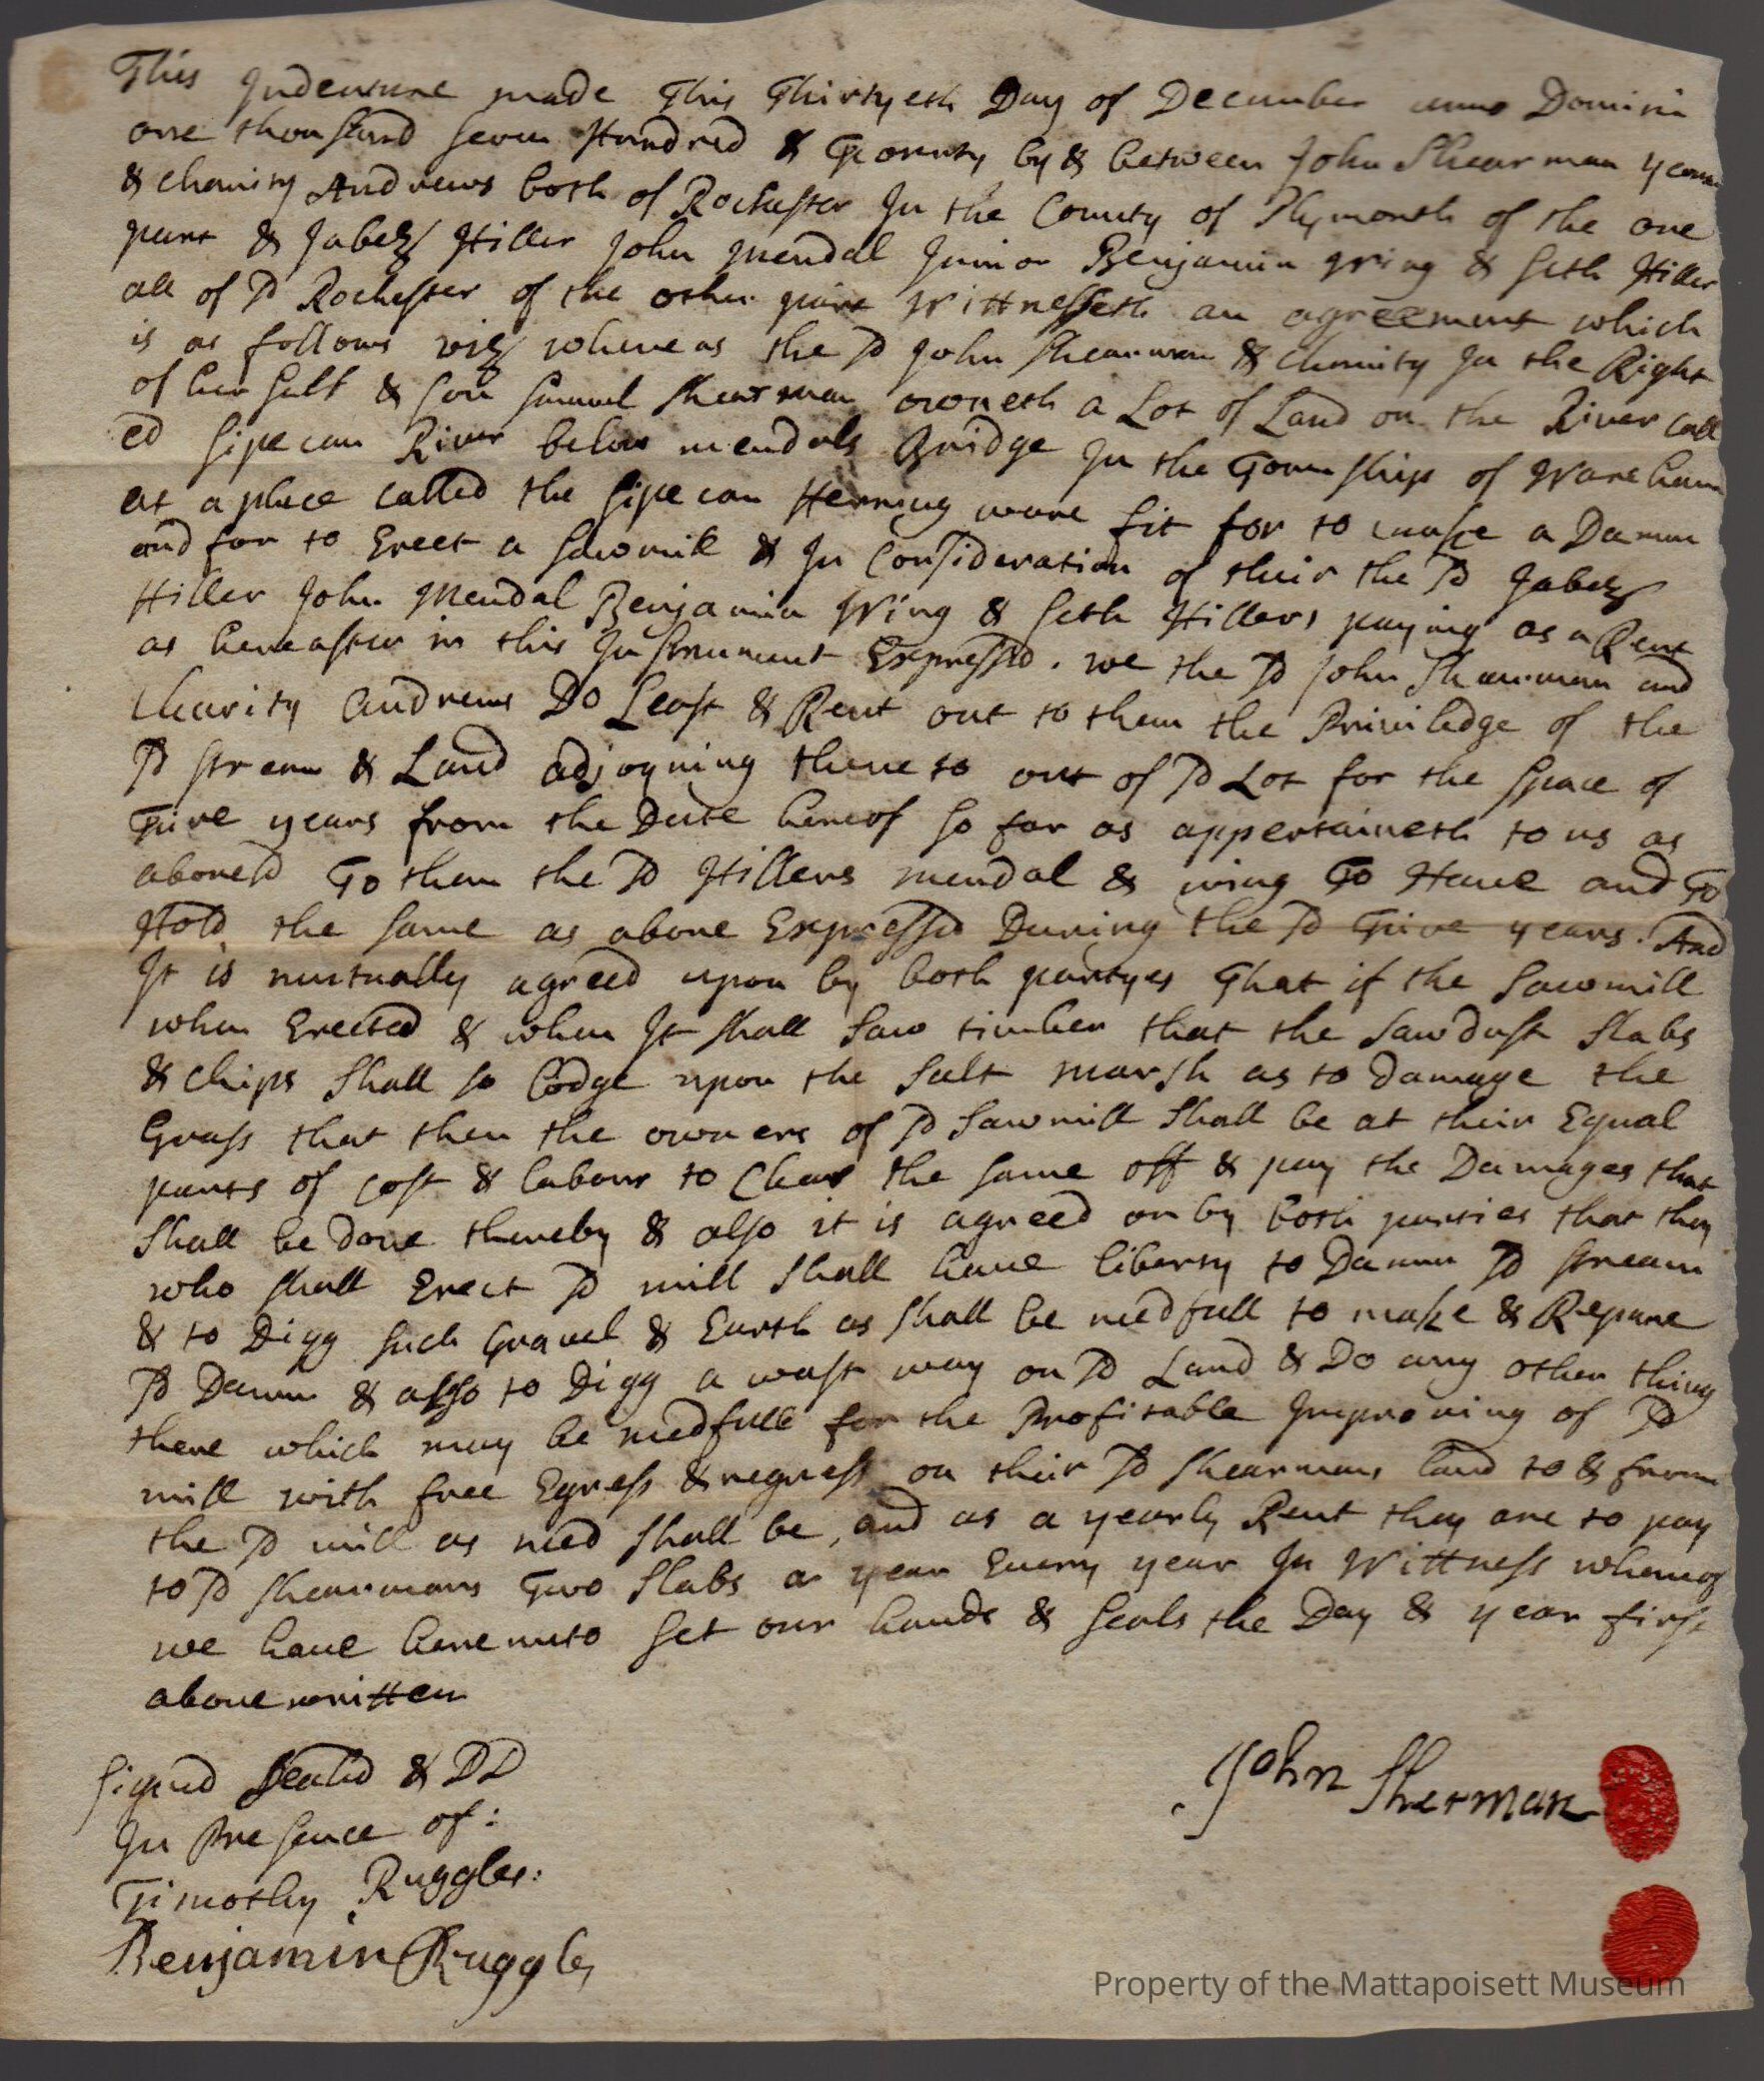 This Indenture made This Thirtyeth Day of December anno Domini
one thousand seven Hundred & by & between John Shearman yeoman
& charity Andrews both of Rochester In the County of Plymouth of the one
part & Jabez Hiller John Mendal Junior Benjamin Wing & Seth Hiller
all of sd Rochester of the other part Wittnesseth an agreement which
is as follows viz whereas the sd John Shearman & charity In the Right
of her self & son Samuel Shearman owneth a Lot of Land on the River call
ed Sipecan River below mendals Bridge In the Township of Wareham
at a place called the Sipecan Herring ware fit for to make a Damm
and for to Erect a sawmill & In Consideration of their the sd Jabez
Hiller John Mendal Benjamin Wing & Seth Hillers paying as a Rent
as hereafter in this Instrument Expressd. we the sd John Shearman and
Charity andrews Do Leas & Rent out to them the Priviledge of the
sd stream & Land adjoyning thereto out of sd Lot for the space of
Five years from the Date hereof so far as appertaineth to us as
abovesd To them the sd Hillers mendal & wing To Have and To
Hold the same as above Expressed During the sd Five years. And
It is mutually agreed upon by both partyes That if the Sawmill
when Erected & when It shall saw timber that the sawdust slabs
& chips shall so lodge upon the salt marsh as to Damage the
Grass that then the owners of sd sawmill shall be at their Equal
parts of cost & labour to Clear the same off & pay the Damages that
shall be done thereby & also it is agreed on by both parties that they
who shall Erect sd mill shall have liberty to Damm sd stream
& to Digg such Gravel & Earth as shall be needfull to make & Repare
sd Damm & also to Digg a wast way on sd Land & Do any other thing
there which may be needfull for the Profitable Improving of sd
mill with free Egress & regress on their sd Shearmans land to & from
the sd mill as need shall be, and as a yearly Rent they are to pay
to sd Shearmans Two slabs a year Every year In Wittness whereof
we have hereunto set our hands & seals the Day & year first
above written
Signed Sealed & DD
In Presence of:
John Sherman
Timothy Ruggles:
Benjamin Ruggles
Property of the Mattapoisett Museum